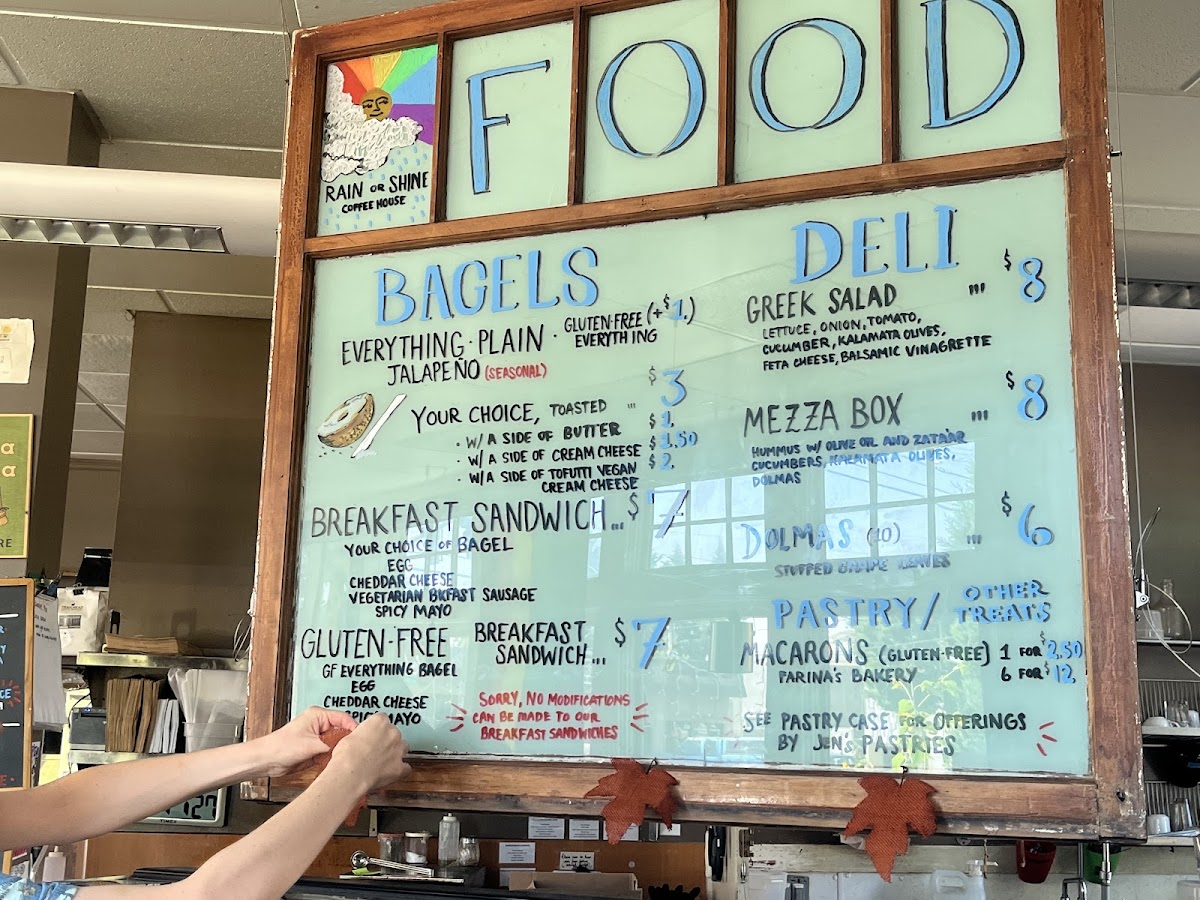 RAIN OR SHINE
COFFEE HOUSE
FOOD
BAGELS
EVERYTHING · PLAIN · GLUTEN-FREE (+$1.)
EVERYTHING
JALAPEÑO (SEASONAL)
YOUR CHOICE, TOASTED ... $3
• W/ A SIDE OF BUTTER $1.
• W/ A SIDE OF CREAM CHEESE $1.50
• W/ A SIDE OF TOFUTTI VEGAN $2.
CREAM CHEESE
BREAKFAST SANDWICH... $7
YOUR CHOICE OF BAGEL
EGG
CHEDDAR CHEESE
VEGETARIAN BKFAST SAUSAGE
SPICY MAYO
GLUTEN-FREE BREAKFAST
SANDWICH... $7
GF EVERYTHING BAGEL
EGG
CHEDDAR CHEESE
SPICY MAYO
SORRY, NO MODIFICATIONS
CAN BE MADE TO OUR
BREAKFAST SANDWICHES
DELI
GREEK SALAD ... $8
LETTUCE, ONION, TOMATO,
CUCUMBER, KALAMATA OLIVES,
FETA CHEESE, BALSAMIC VINAGRETTE
MEZZA BOX ... $8
HUMMUS W/ OLIVE OIL AND ZATA'AR
CUCUMBERS, KALAMATA OLIVES,
DOLMAS
DOLMAS (10) ... $6
STUFFED GRAPE LEAVES
PASTRY/ OTHER
TREATS
MACARONS (GLUTEN-FREE) 1 FOR $2.50
PARINA'S BAKERY 6 FOR $12.
SEE PASTRY CASE FOR OFFERINGS
BY JEN'S PASTRIES